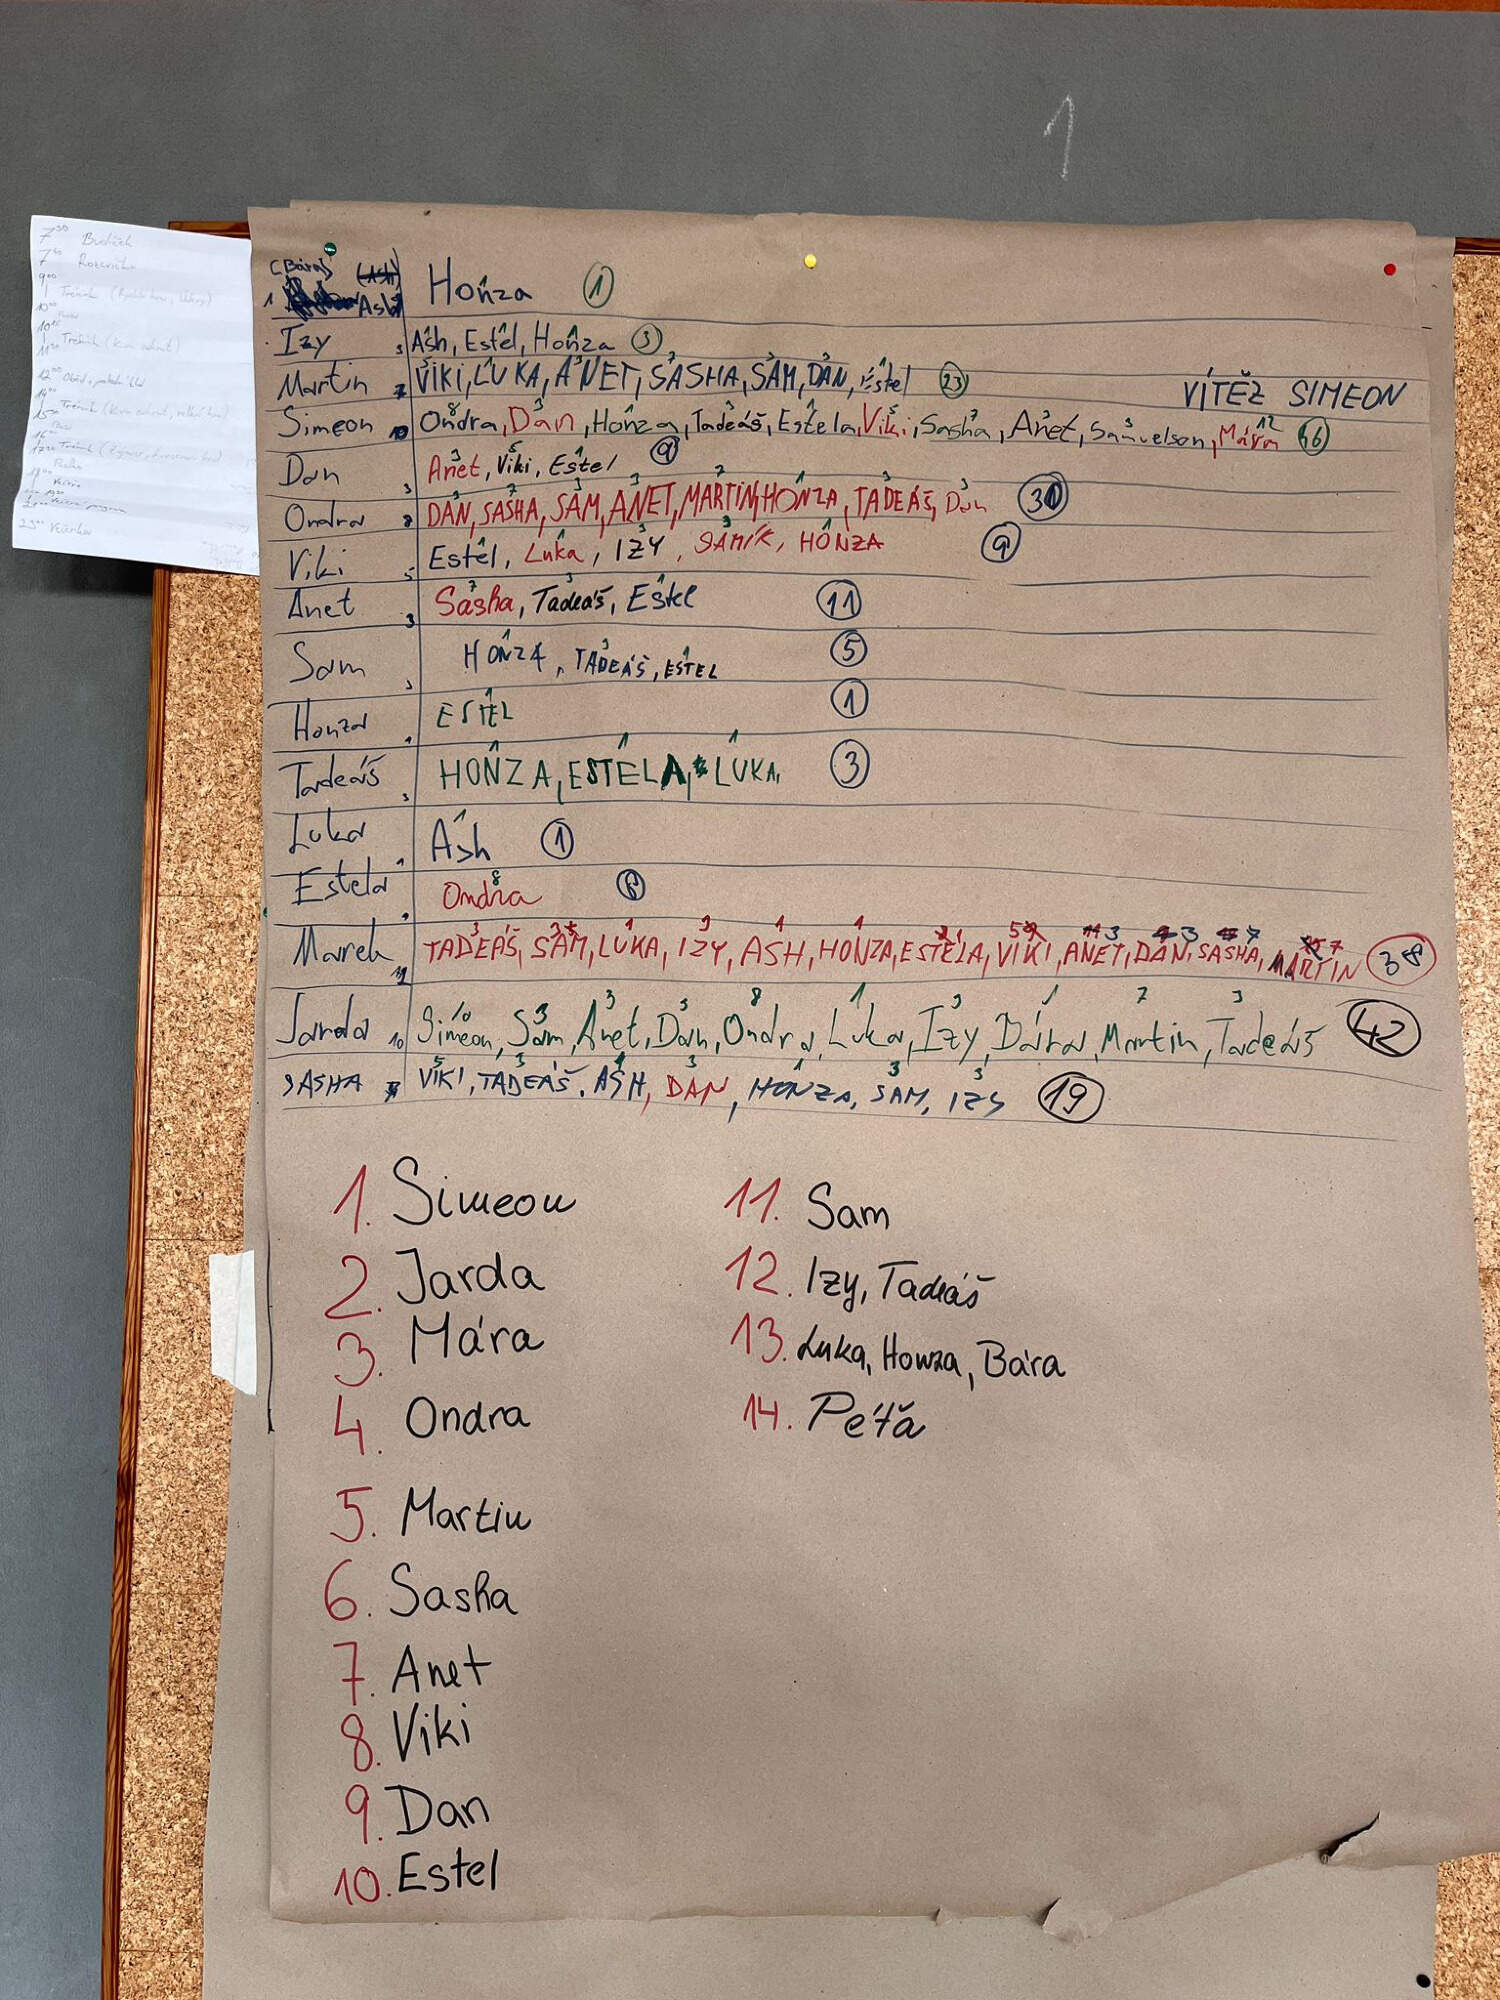 1
7³⁰ Budíček
7⁴⁰ Rozcvička
9⁰⁰
Trénink
10⁰⁰
10¹⁵
Trénink
11³⁰
12⁰⁰ Oběd
14⁰⁰
Trénink
15³⁰
16⁰⁰
Trénink
17³⁰
Večeře
(Bára) (Ash)
1 Ash Honza 1 ①
Izy 3 Ash, Estel, Honza ③
Martin 7 VIKI, LUKA, ANET, SASHA, SAM, DAN, Estel ㉓
VÍTĚZ SIMEON
Simeon 10 Ondra, Dan, Honza, Tadeáš, Estela, Viki, Sasha, Anet, Samuelson, Mára 46
Dan 3 Anet, Viki, Estel ⑨
Ondra 8 DAN, SASHA, SAM, ANET, MARTIN, HONZA, TADEÁŠ, Dan
Viki 5 Estel, Luka, IZY, SAMÍK, HONZA ⑨
Anet 3 Sasha, Tadeáš, Estel ⑪
Sam 3 HONZA, TADEÁŠ, ESTEL ⑤
Honza 1 ESTEL ①
Tadeáš 3 HONZA, ESTELA, LUKA, ③
Luka 1 Ash ①
Estela 1 Ondra ⑧
Marek TADEÁŠ, SAM, LUKA, IZY, ASH, HONZA, ESTELA, VIKI, ANET, DAN, SASHA, MARTIN 38
Jarda 10 Simeon, Sam, Anet, Dan, Ondra, Luka, Izy, Bára, Martin, Tadeáš 42
SASHA VIKI, TADEÁŠ, ASH, DAN, HONZA, SAM, IZY 19
1. Simeon
2. Jarda
3. Mára
4. Ondra
5. Martin
6. Sasha
7. Anet
8. Viki
9. Dan
10. Estel
11. Sam
12. Izy, Tadeáš
13. Luka, Honza, Bára
14. Péťa